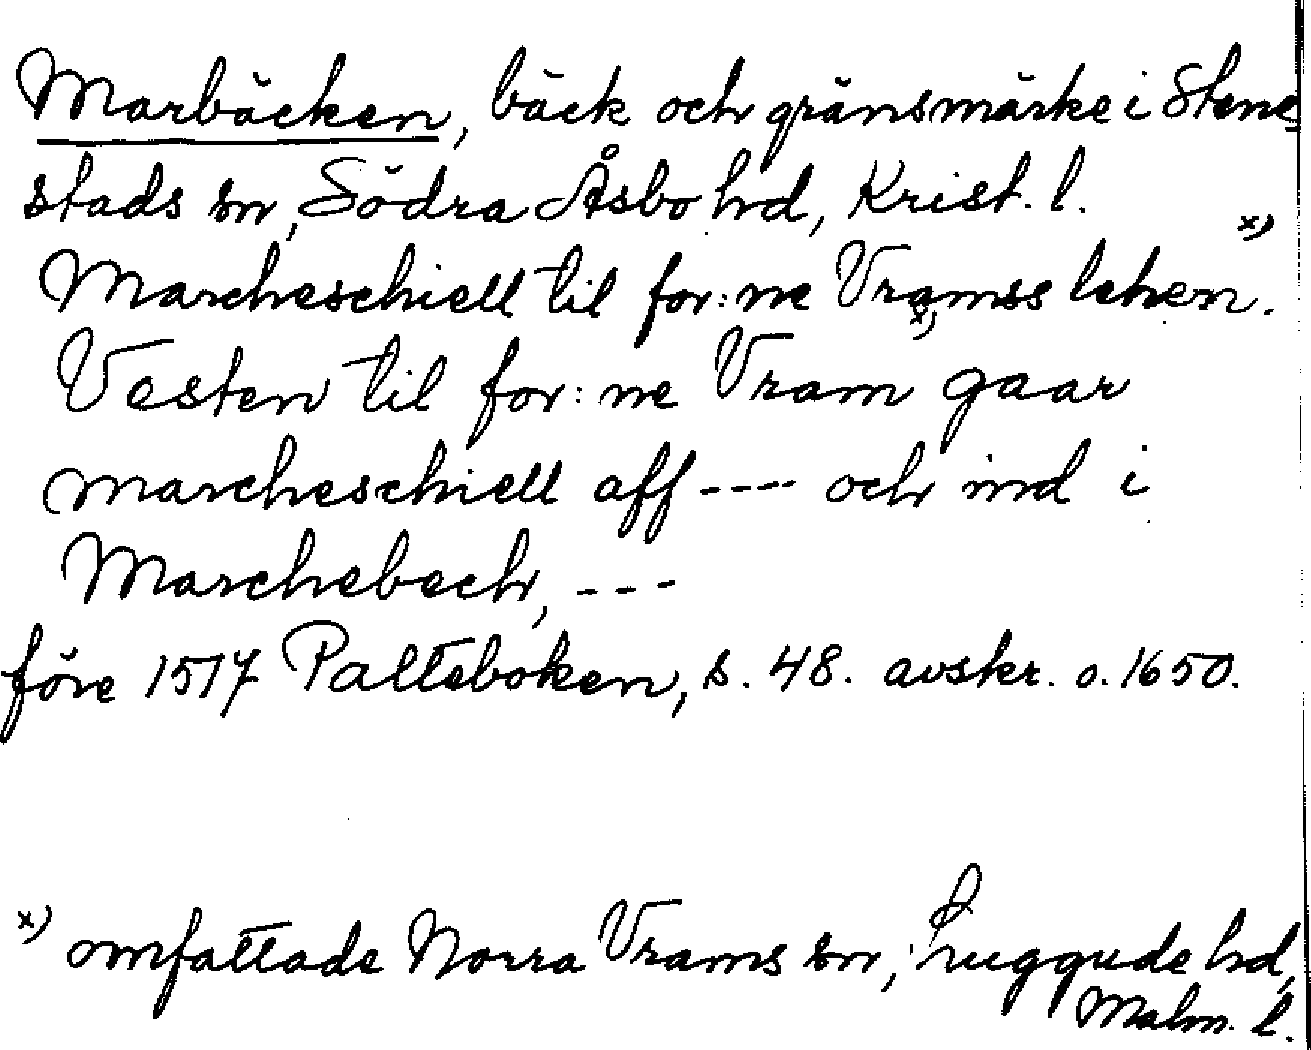 Marbäcken, bäck och gränsmärke i Stene-
stads sn, Södra Åsbo hd, Krist. l.
Marcheschiell til for:ne Vramss lehen. x)
Vesten til for:ne Vram x) gaar
marcheschiell aff ---- och ind i
Marchebech, ---
före 1517 Palteboken, s. 48. avskr. o. 1650.
x) omfattade Norra Vrams sn, Luggude hd,
Malm. l.